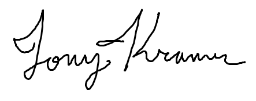 Tony Kramer